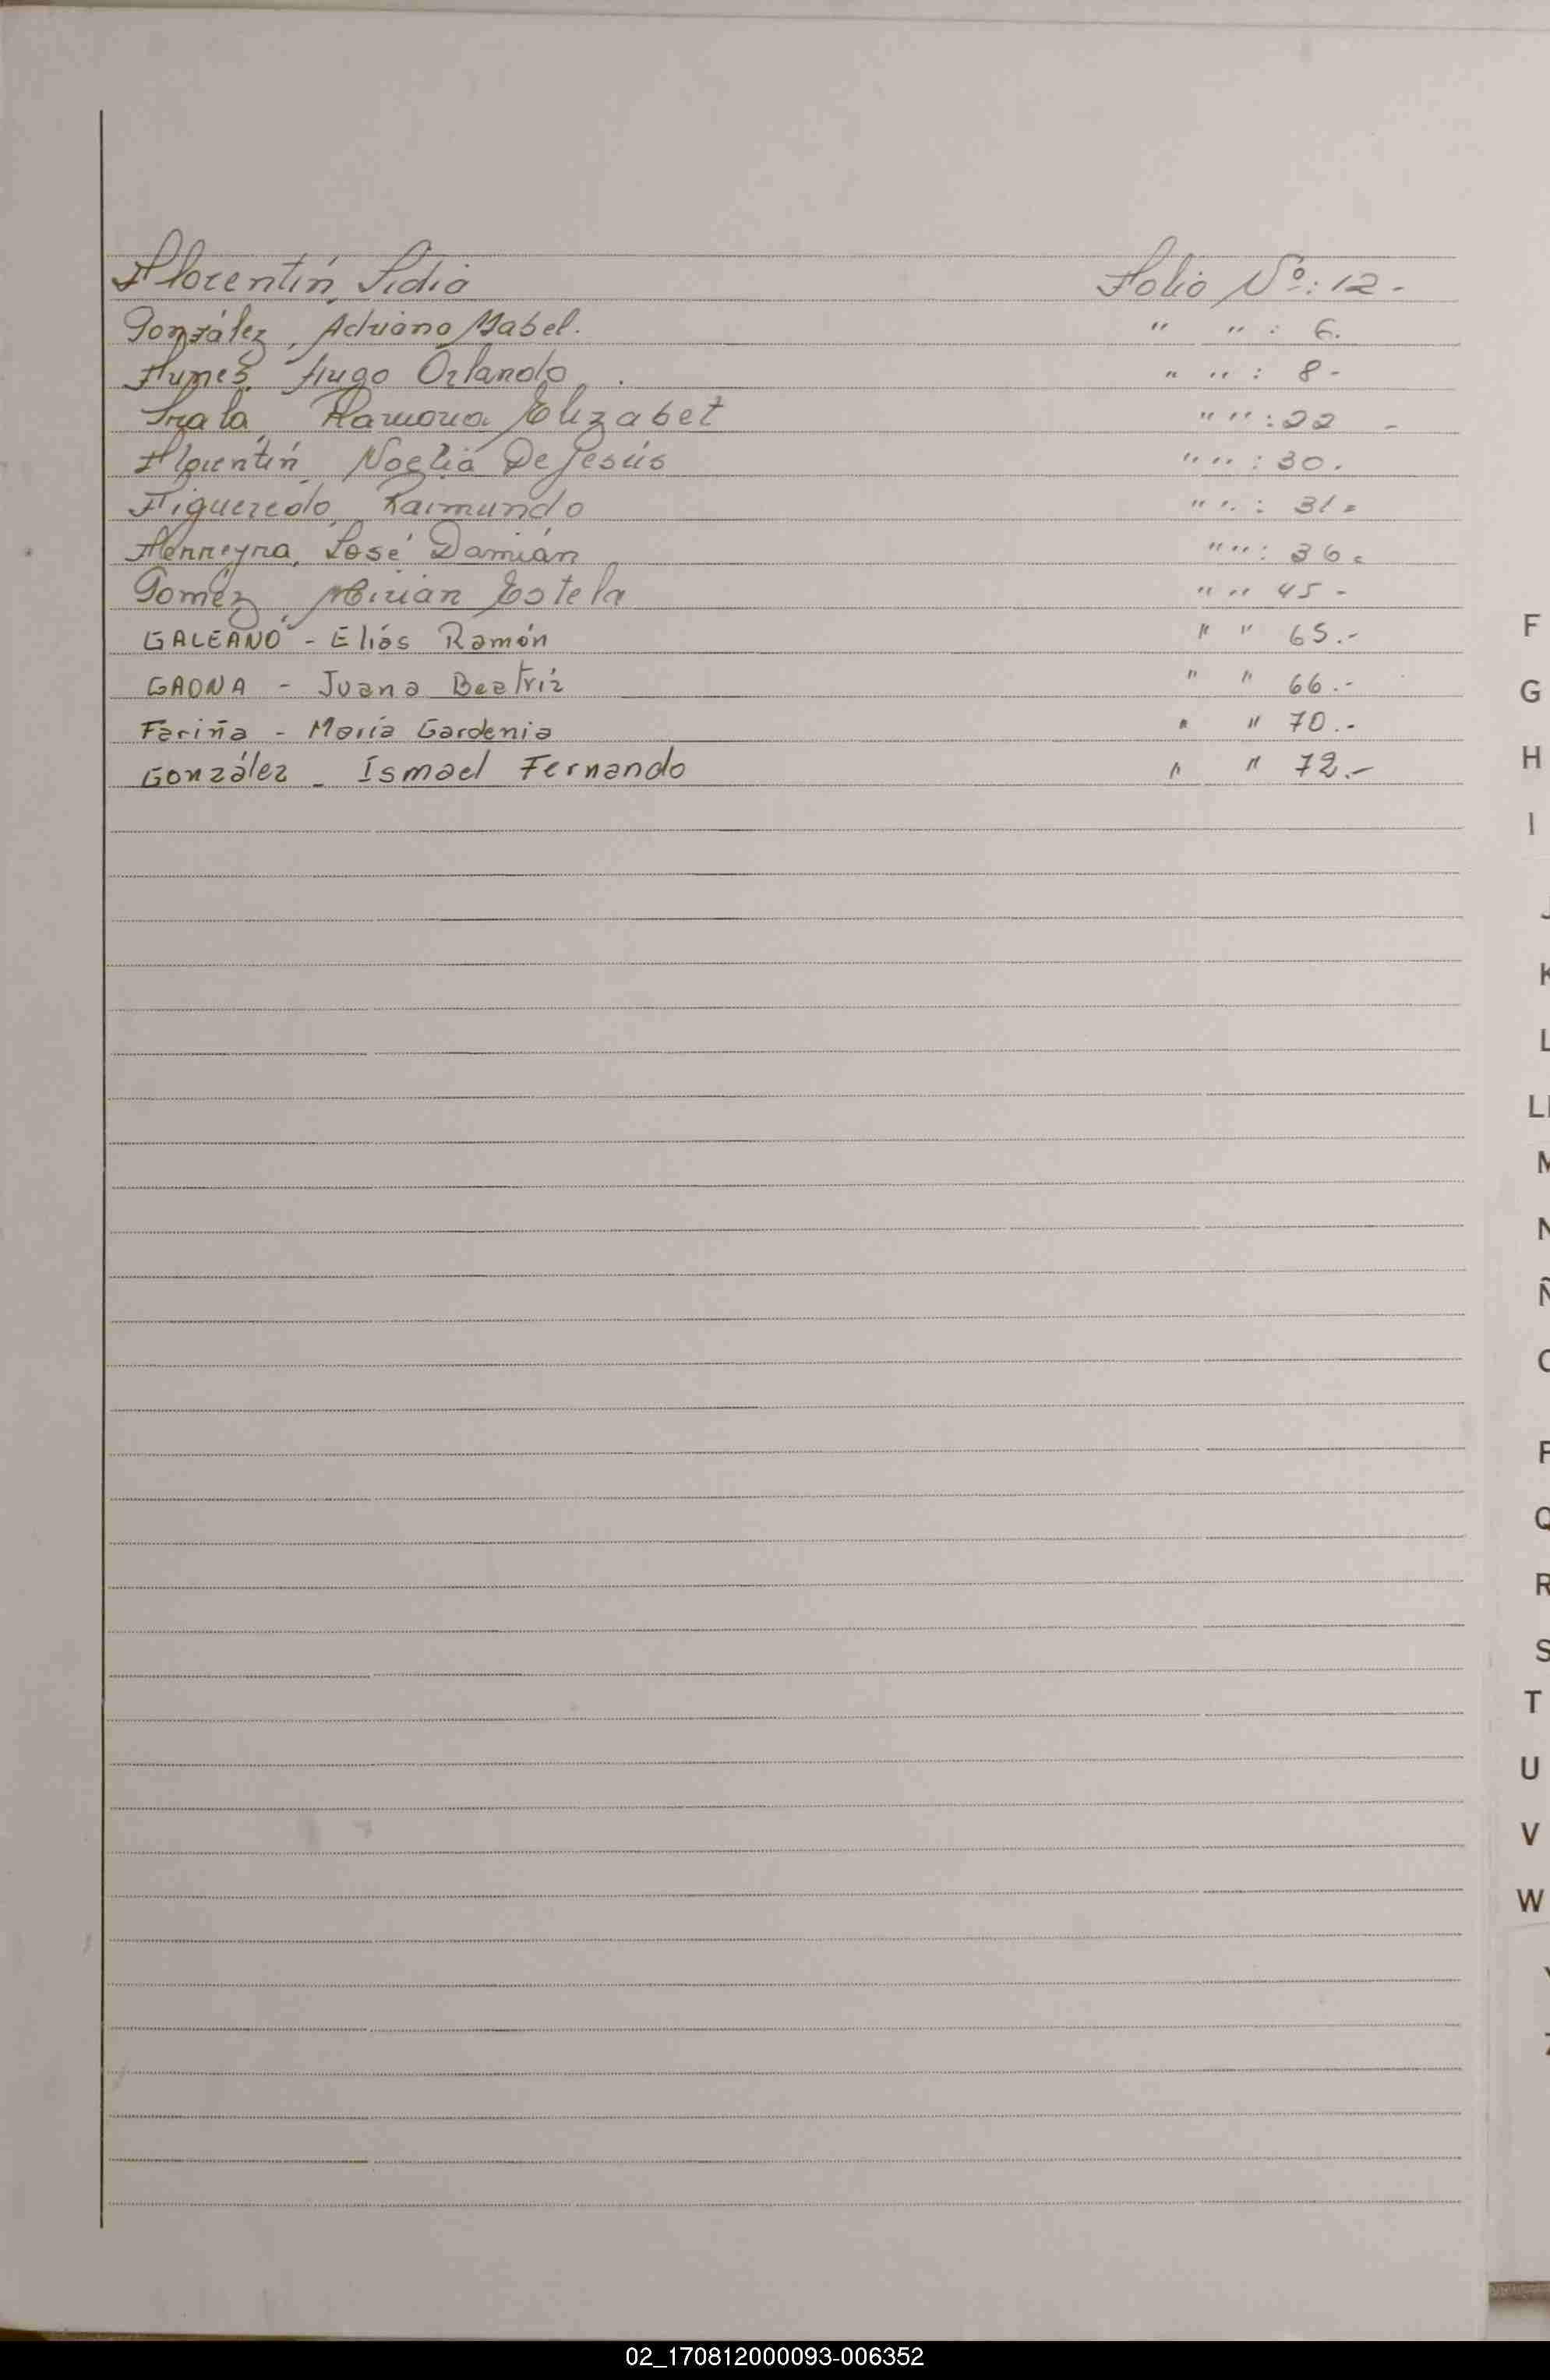 Florentín, Lidia Folio Nº: 12-
González, Adriana Mabel. " " : 6.
Funes, Hugo Orlando. " " : 8-
Irala, Ramona Elizabet " " : 22 -
Florentín, Noelia De Jesús " " : 30.
Figueredo, Raimundo " " : 31-
Ferreyra, José Damián " " : 36.
Gomez, Mirian Estela " " 45-
GALEANO - Eliás Ramón " " 65.-
GAONA - Juana Beatriz " " 66.-
Fariña - María Gardenia " " 70.-
González - Ismael Fernando " " 72.-
F
G
H
I
J
K
L
Ll
M
N
Ñ
O
P
Q
R
S
T
U
V
W
Y
Z
02_170812000093-006352